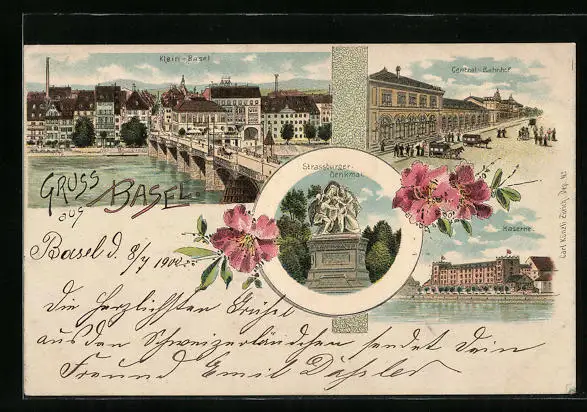 Klein-Basel
Central-Bahnhof
Strassburger-
Denkmal.
GRUSS
aus BASEL.
Kaserne.
Carl Künzli Zürich, Dep. No
Basel d. 8/7 1902
Die herzlichsten Grüsse
aus den Schweizerländchen sendet Dein
Freund Emil Dässler